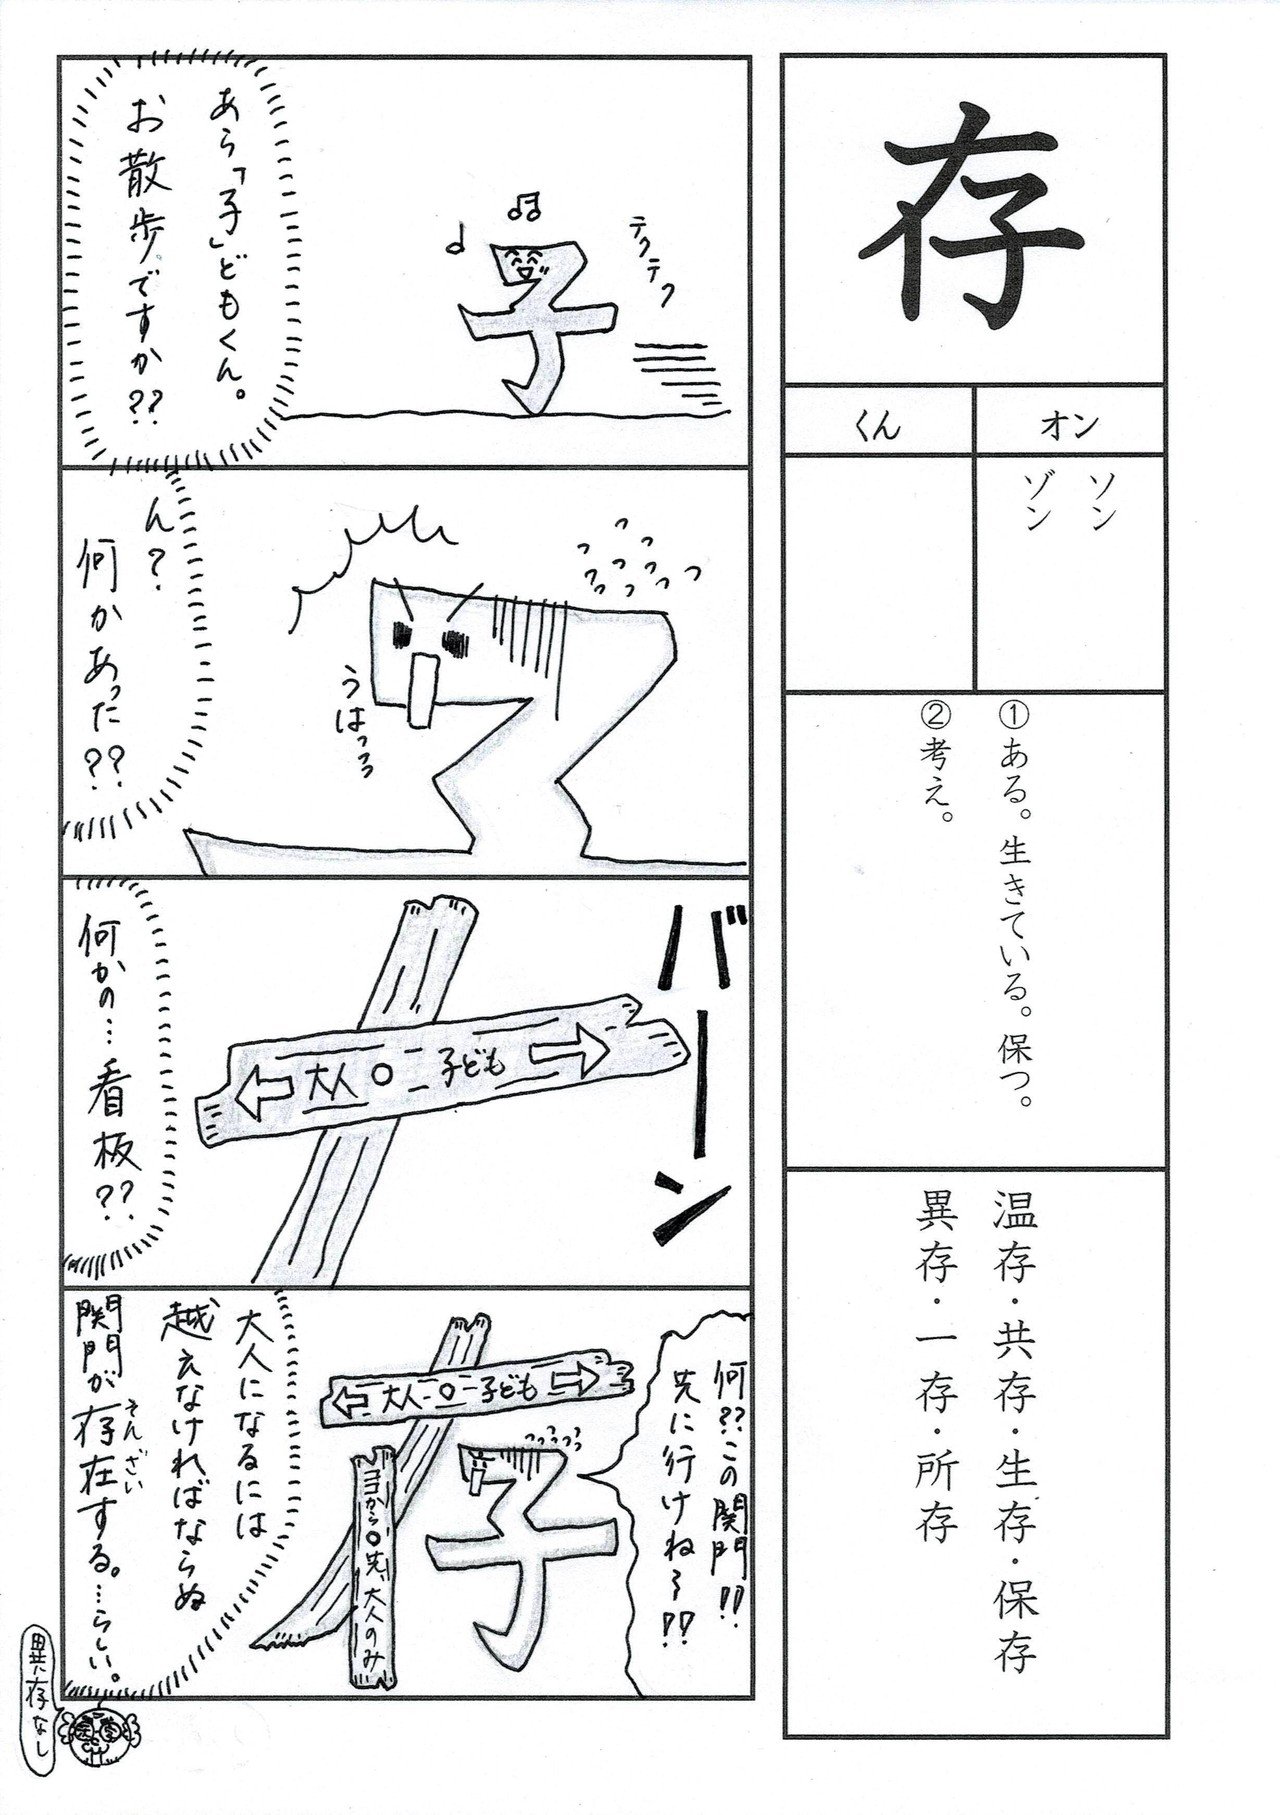 存
オン
くん
ソン
ゾン
①ある。生きている。保つ。
②考え。
温存・共存・生存・保存
異存・一存・所存
テクテク
あら「子」どもくん。
お散歩ですか??
うはっ
ん?
何かあった??
バーン
←大人 子ども→
何かの…看板??
何??この関門!!
先に行けね〜!!
←大人 子ども→
ココから先、大人のみ
大人になるには
越えなければならぬ
関門が存在する。…らしい。
そんざい
異存なし